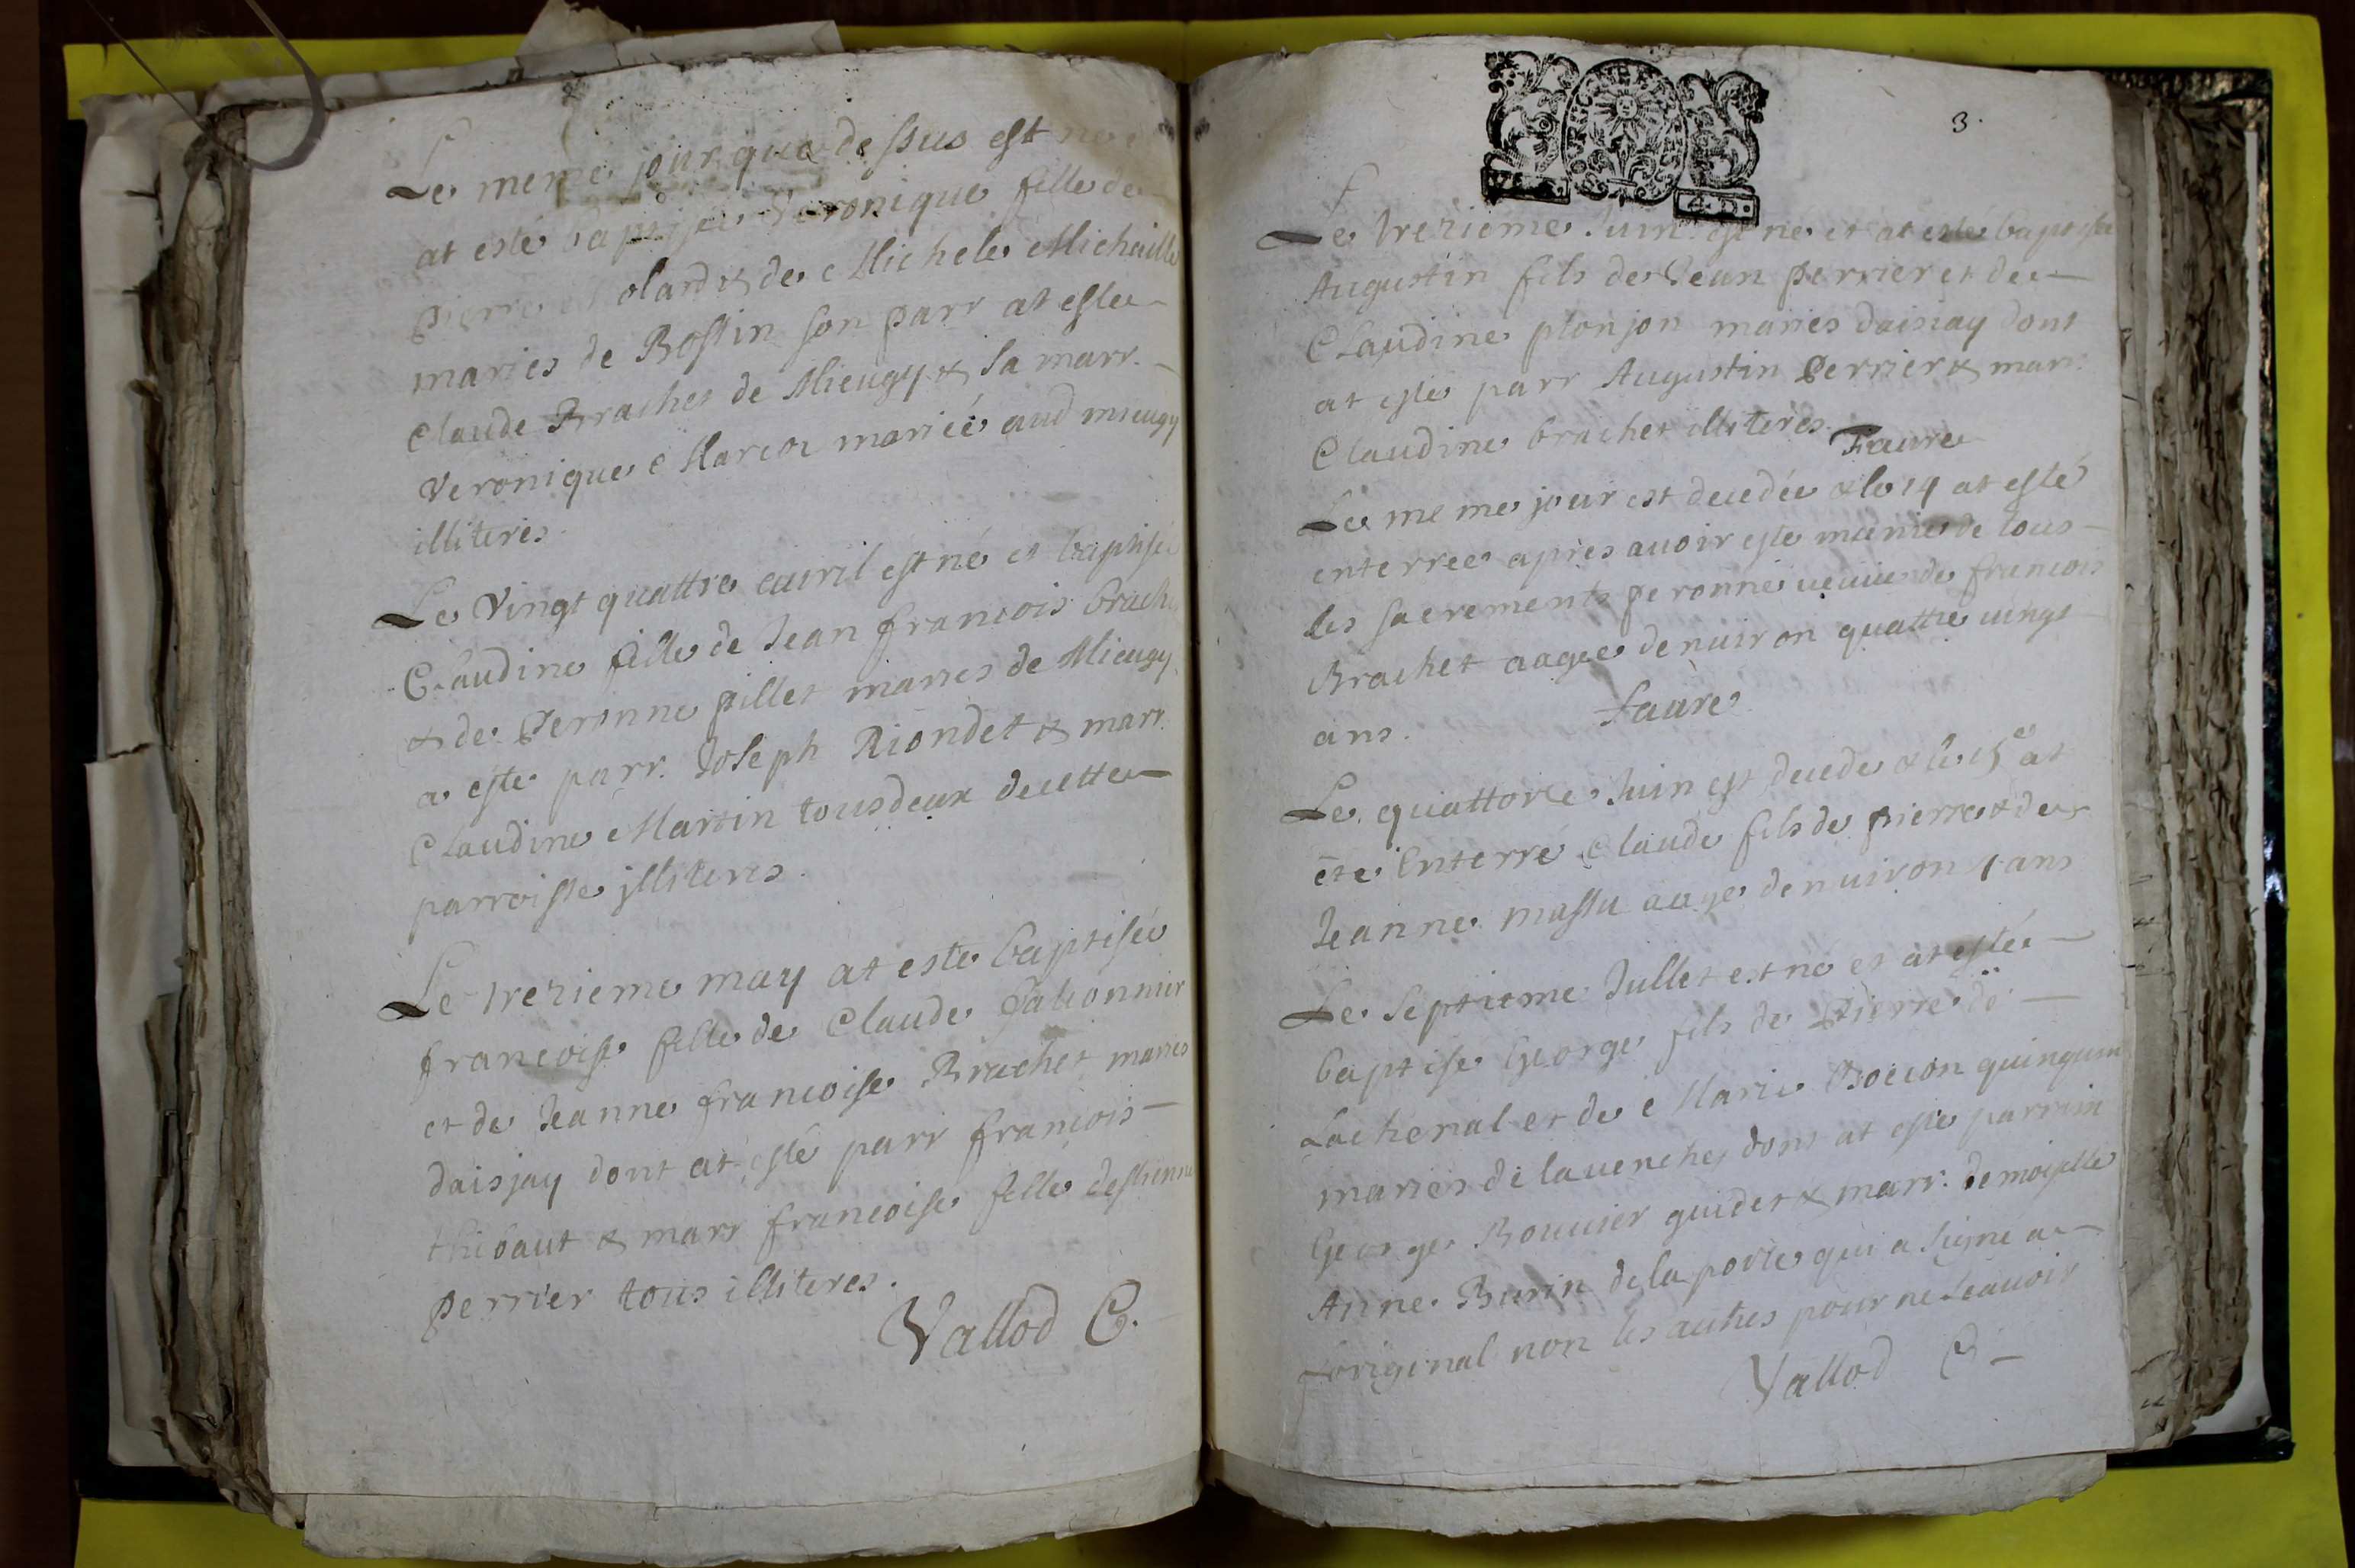 Le meme jour que dessus est né
at esté baptisée Veronique fille de
pierre olard & de Michele Michaille
maries de Bossin son parr at esté
Claude Brachet de Mieugy & sa marr.
Veronique Marcoz mariée aud mieugy
illiteres.
Le Vingt quattre auril est né et baptisée
Claudine fille de Jean françois brachet
& de Peronne pillet maries de Mieugy
a esté parr. Joseph Riondet & marr.
Claudine Martin tous deux de cette
parroisse illiteres.
Le trezieme may at esté baptisée
françoise fille de Claude
et de Jeanne françoise Brachet maries
daisjay dont at esté parr françois
thibaut & marr françoise fille destienne
perrier tous illiteres.
Vallod C.
3.
4 D.
Le trezieme Juin est né et at esté baptisé
Augustin fils de Jean perrier et de
Claudine plonjon maries daisjay dont
at esté parr Augustin Perrier & marr.
Claudine brachet illiteres.
Faure
Le meme jour est decedée & le 14 at esté
enterrée apres auoir esté munie de tous
les sacrements peronne ueuue de francois
Brachet aagée denuiron quattre uingt
ans. faure
Le quattorze Juin est decedé & le 15e at
été Enterré Claude fils de pierre & de
Jeanne massu aagé denuiron ans
Le septieme Jullet est né et at esté
baptisé George fils de Pierre de
Lachenal et de Marie Bocion
maries de lauenches dont at esté parrain
George Bouuier guidet & marr. demoiselle
Anne Burin de la porte qui a signé a
Loriginal non les autres pour ne scauoir
Vallod C